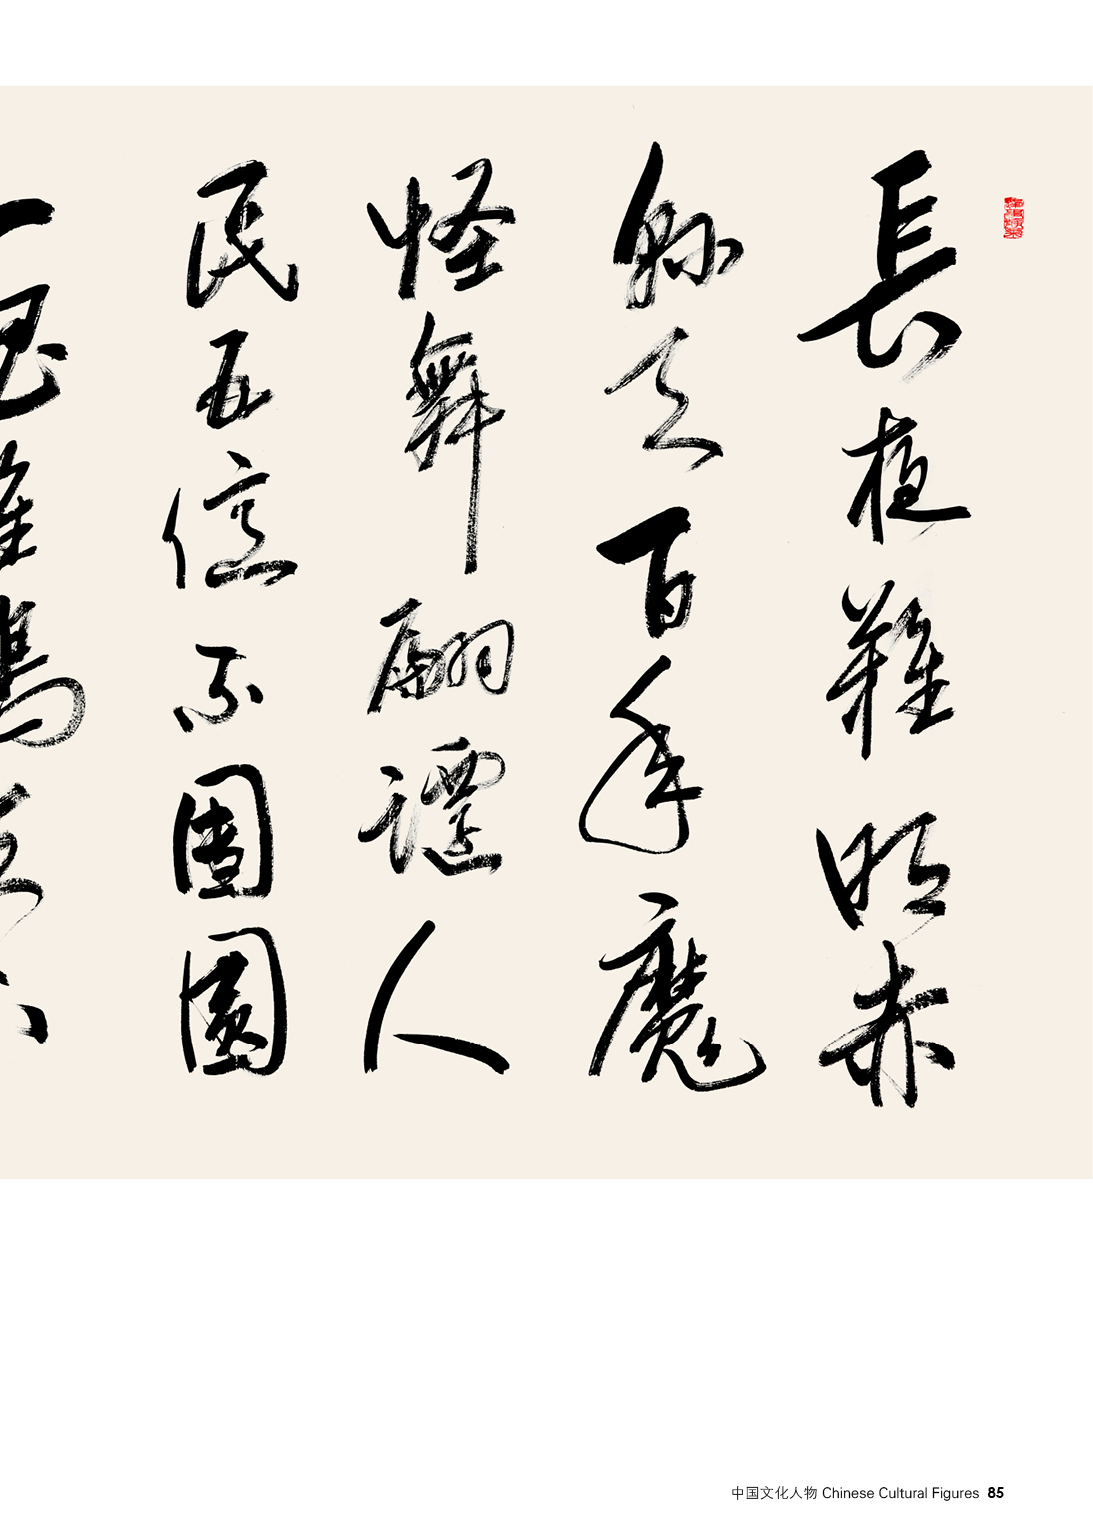 長難明赤
縣天百年魔
怪舞翩躚人
民五億不團圓
中国文化人物 Chinese Cultural Figures 85